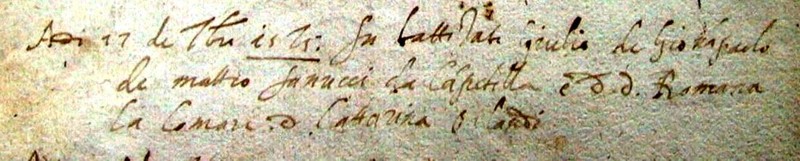 Adi 27 de 7bre 1575: fu battizato Giulio de Gio: Paolo
de matteo Janucci da Capitella e D. d. Romana
la Comare D. Catterina